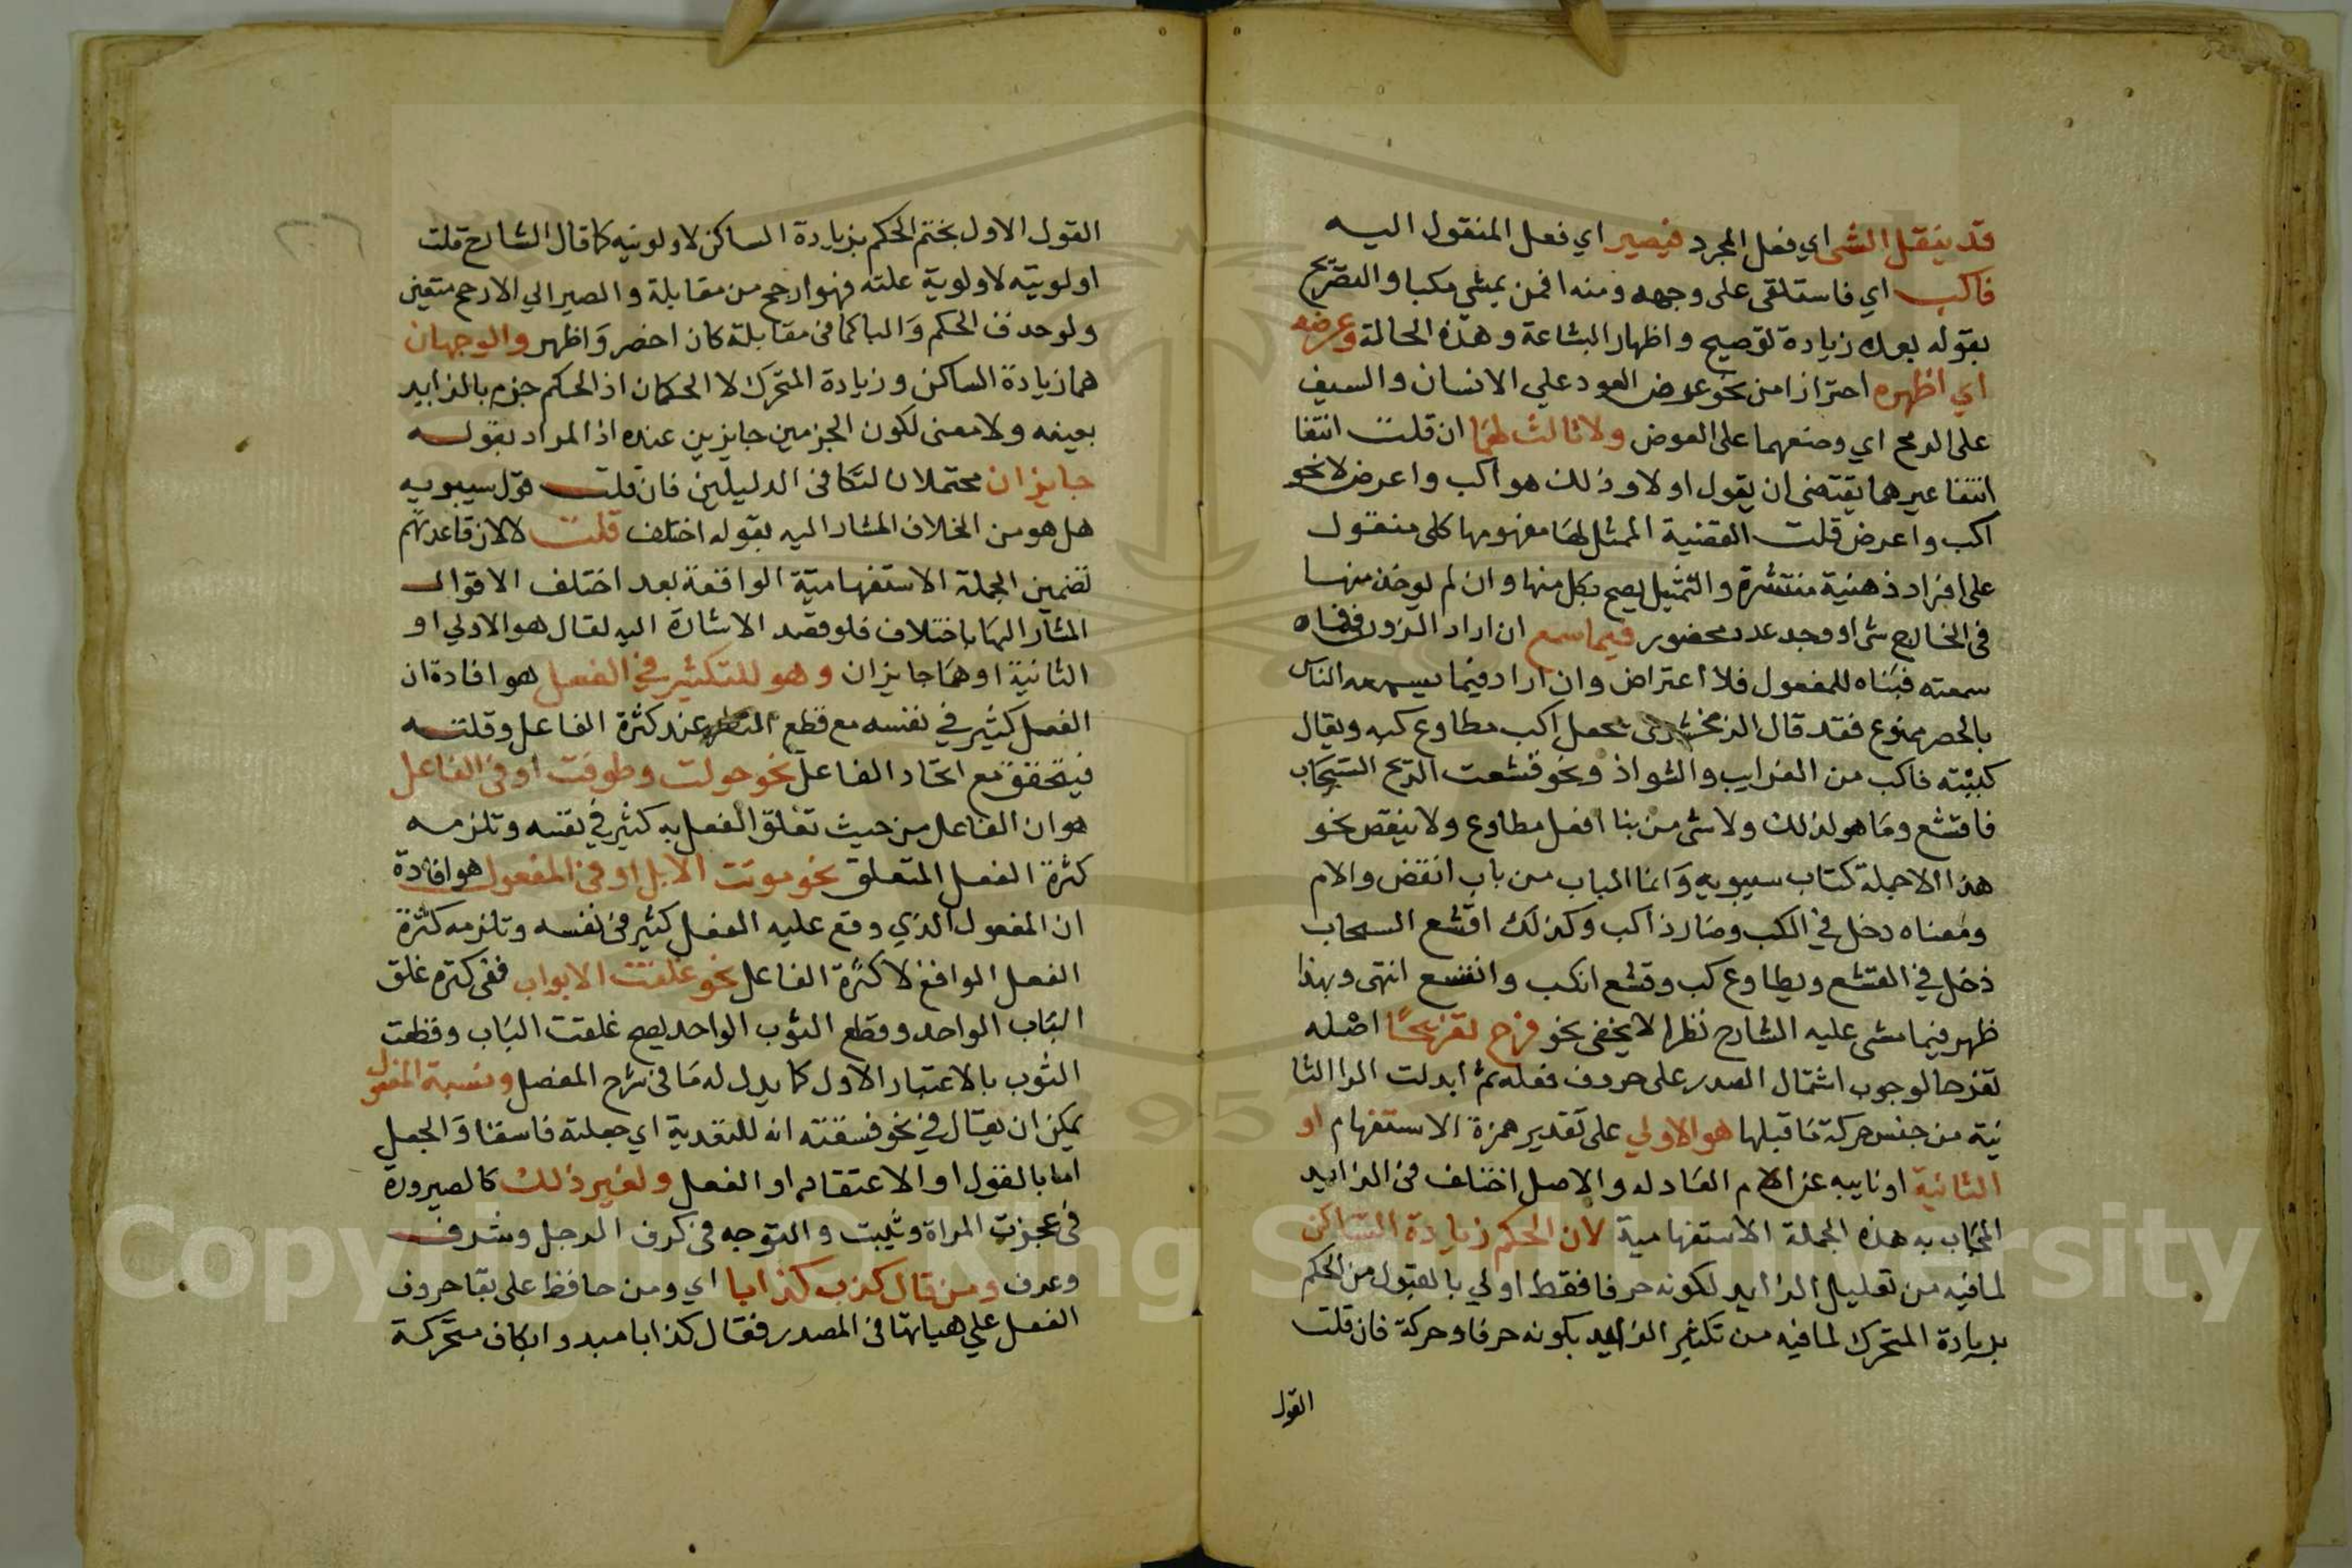 قد ينقل الشى اي فعل المجرد فيصير اي فعل المنقول اليه
فاكب اي فاستلقى على وجهه ومنه افمن يمشي مكبا والتصريح
بقوله بعده زيادة توضيح واظهار البشاعة وهذه الحالة وعرضه
اي اظهره احترازا من نحو عرض العود على الانسان والسيف
على الرمح اي وضعهما على العوض ولا ثالث لهما ان قلت انتفا
انتفا غيرهما يقتضى ان يقول اولا وذلك هو اكب واعرض لا نحو
اكب واعرض قلت القضية الممثل لها مفهومها كلى منقول
على افراد ذهنية منتشرة والتمثيل يصح بكل منها وان لم يوخذ منها
فى الخارج شى او وجد عدد محضور فيما سمع ان اراد الزوزنى فماه
سمعته فبناه للمفعول فلا اعتراض وان اراد فيما يسمعه الناس
بالحصر ممنوع فقد قال الزمخشرى بجعل اكب مطاوع كبه ويقال
كببته فاكب من الغرايب والشواذ ونحو قشعت الريح السحاب
فاقشع وما هو لذلك ولا شى من بنا افعل مطاوع ولا ينقص نحو
هذا الا جملة كتاب سيبويه وانما الباب من باب انقض والام
ومعناه دخل في الكب وصار ذا اكب وكذلك اقشع السحاب
دخل في القشع ويطاوع كب وقشع انكب وانقشع انتهى وبهذا
ظهر فيما مشى عليه الشارح نظر لا يخفى نحو فرح تفريحًا اصله
تفرحا لوجوب اشتمال المصدر على حروف فعله ثم ابدلت الرا الثا
نية من جنس حركة ما قبلها هو الاولي على تقدير همزة الاستفهام او
الثانية او نايبه عن الام العادله والاصل اختلف فى الزايد
المجاب به هذه الجملة الاستفهامية لان الحكم زيادة الساكن
لما فيه من تقليل الزايد لكونه حرفا فقط اولي بالقبول من الحكم
بزيادة المتحرك لما فيه من تكثير الزايد بكونه حرفا وحركة فان قلت
القول
القول الاول بختم الحكم بزيادة الساكن لاولويته كما قال الشارح قلت
اولويته لاولوية علته فهو ارجح من مقابلة والمصير الي الارجح متعين
ولو حذف الحكم والبا كما فى مقابلة كان اخضر واظهر والوجهان
هما زيادة الساكن وزيادة المتحرك لا الحكمان اذ الحكم جزم بالزايد
بعينه ولا معنى لكون الجزمين جايزين عنده اذ المراد بقوله
جايزان محتملان لتكافى الدليلين فان قلت قول سيبويه
هل هو من الخلاف المشار اليه بقوله اختلف قلت لا لان قاعدتهم
تضمين الجملة الاستفهامية الواقعة بعد اختلف الاقوال
المشار اليها باختلاف فلو قصد الاشارة اليه لقال هو الاولي او
الثانية او هما جايزان وهو للتكثير في الفعل هو افادة ان
الفعل كثير في نفسه مع قطع النظر عند كثرة الفاعل وقلته
فيتحقق مع اتحاد الفاعل نحو جولت وطوفت او فى الفاعل
هو ان الفاعل من حيث تعلق الفعل به كثير في نفسه وتلزمه
كثرة الفعل المتعلق نحو موتت الابل او فى المفعول هو افادة
ان المفعول الذي وقع عليه الفعل كثير فى نفسه وتلزمه كثرة
الفعل الواقع لا كثرة الفاعل نحو غلقت الابواب ففى كثرة غلق
الباب الواحد وقطع الثوب الواحد يصح غلقت الباب وقطعت
الثوب بالاعتبار الاول كما يدل له ما فى شرح المفصل ونسبة المفعول
يمكن ان يقال في نحو فسقته انه للتعدية اي جعلته فاسقا والجعل
اما بالقول او الاعتقاد او الفعل ولغير ذلك كالصيرورة
فى عجزت المراة وثيبت والتوجه فى كرف الرجل وشرف
وعرف ومن قال كذب كذابا اي ومن حافظ على بقا حروف
الفعل علي هياتها فى المصدر فقال كذابا مبدوا بكاف متحركة